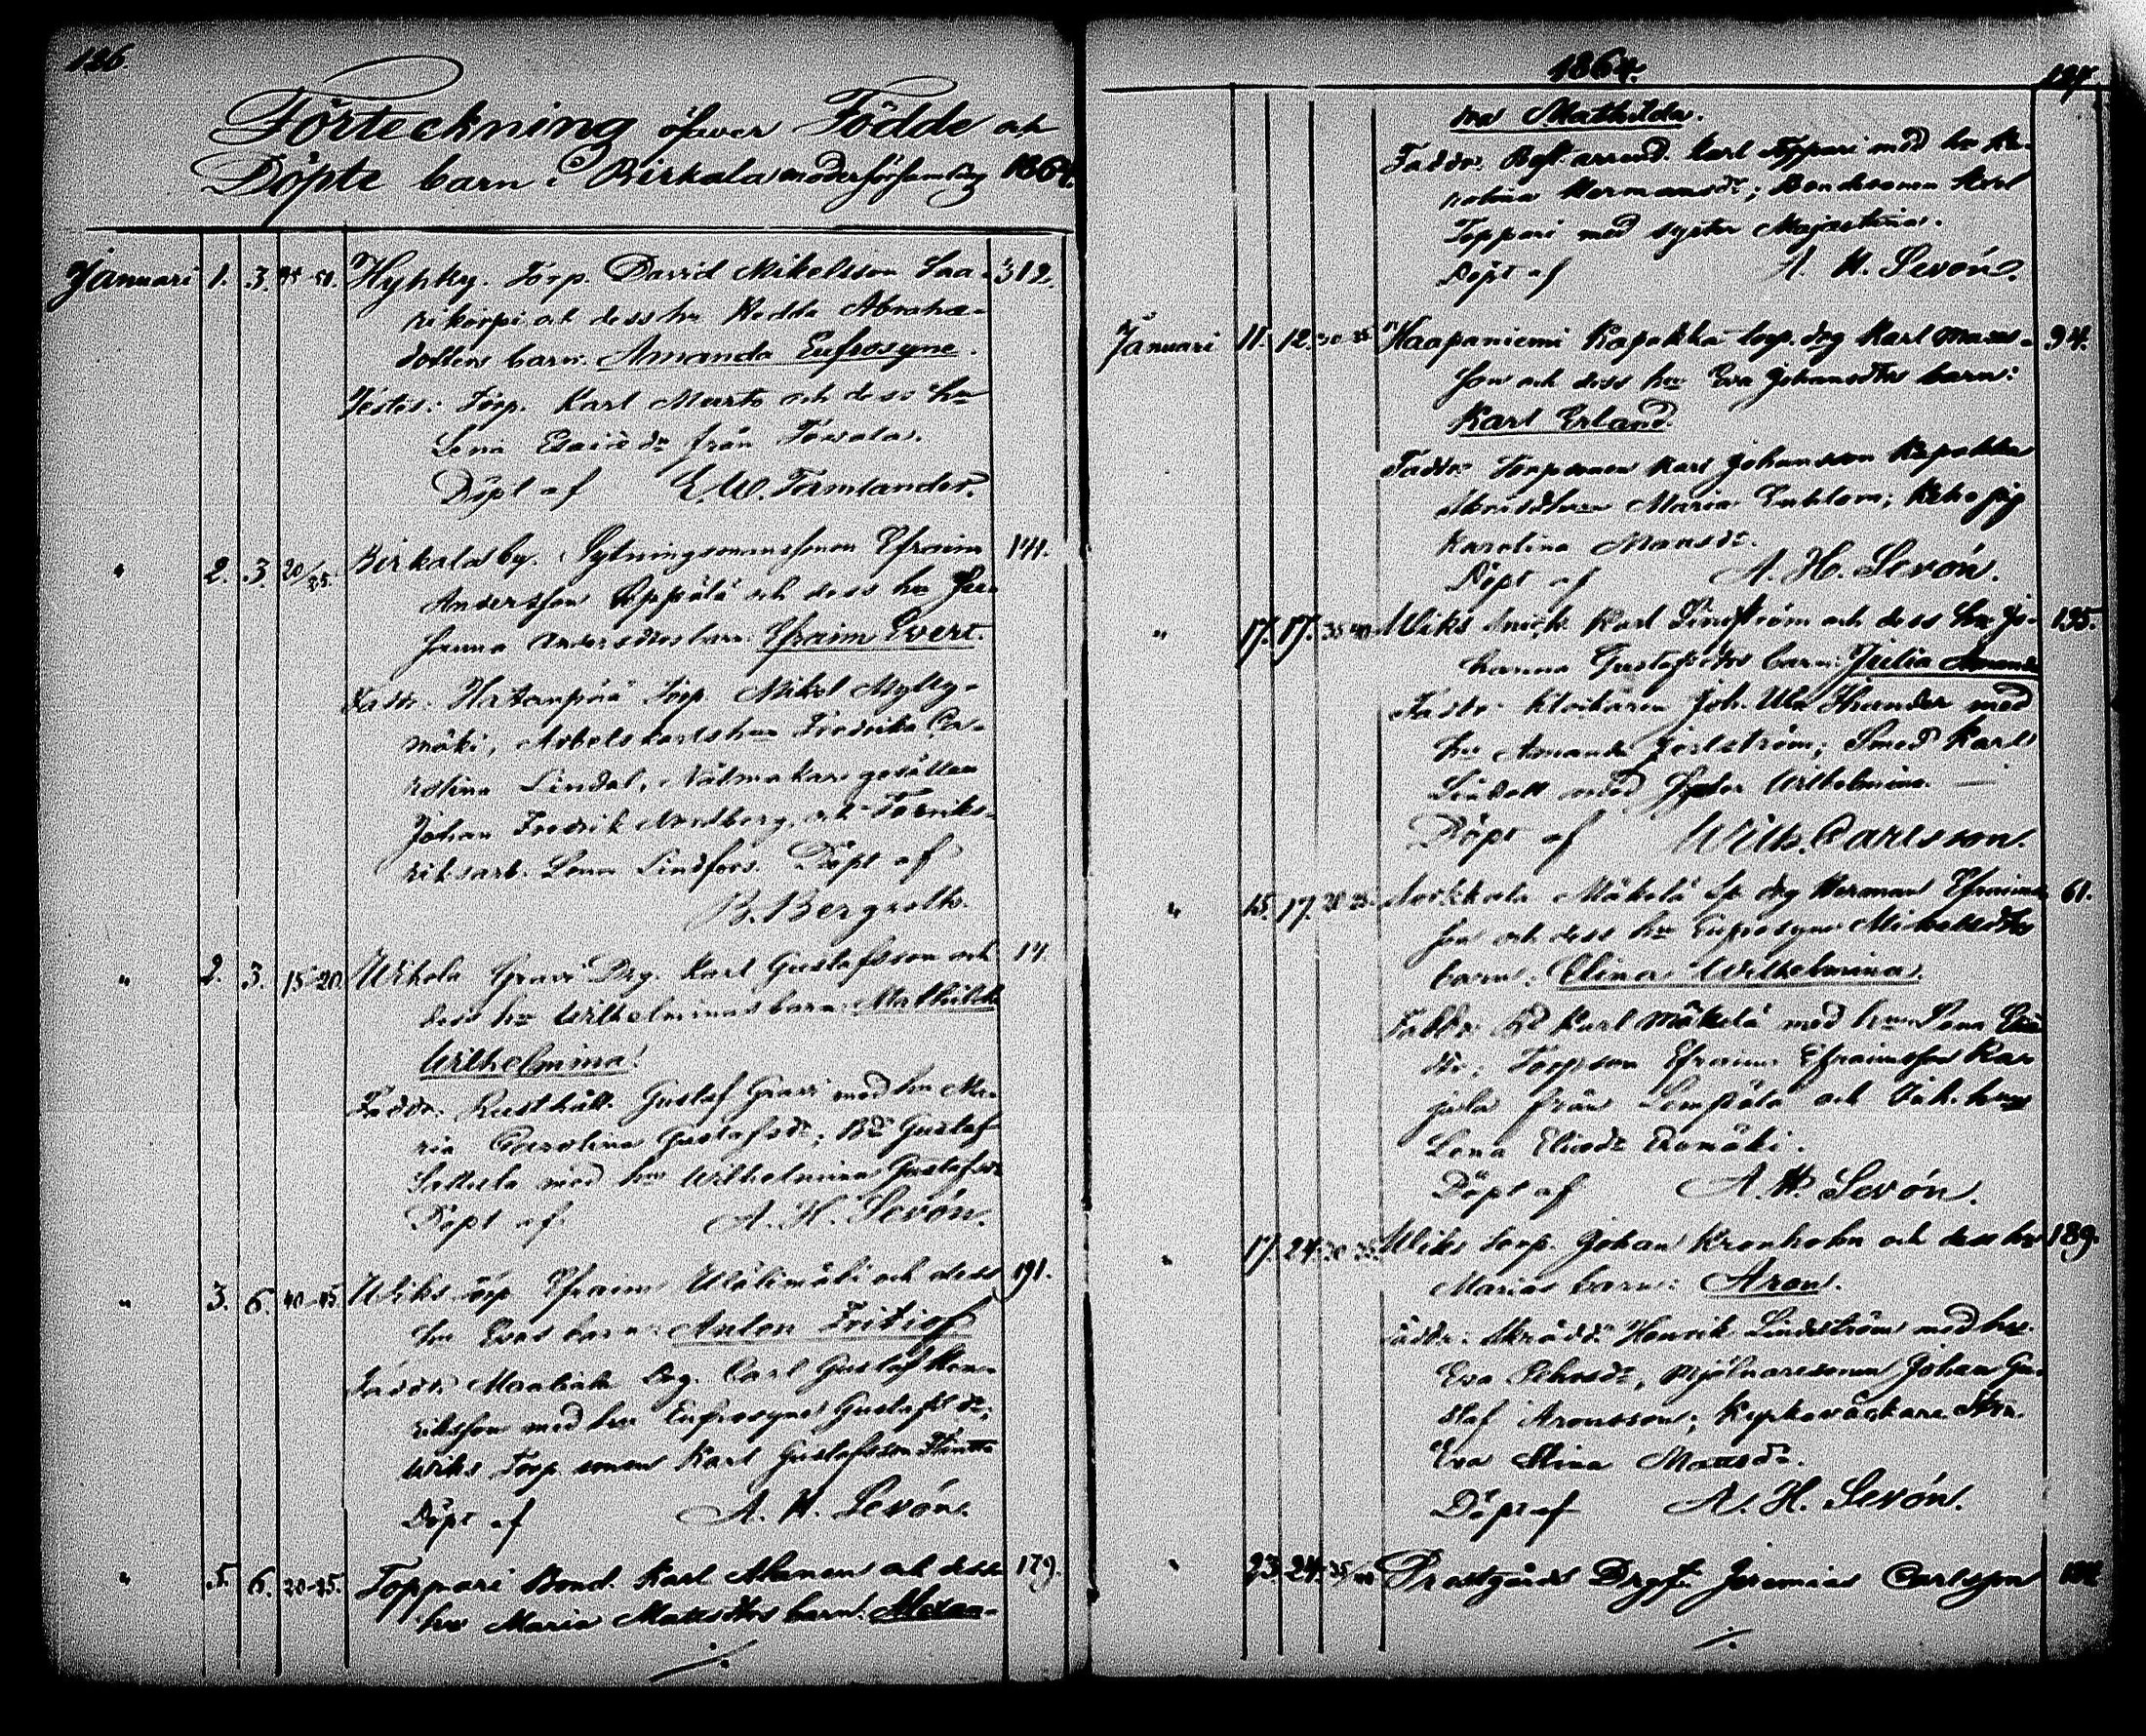 126.
Förteckning öfwer Födde och
Döpte barn i Birkala moderförsamling 1864.
Januari 1. 3. 45-50. Hyhky. Torp. David Mikelsson Saa- 312.
rikorpi och dess hu Hedda Abrahams-
dotters barn: Amanda Eufrosyne.
Testes: Torp. Karl Murto och dess hu
Lena från
Döpt af E.W. Tamlander.
" 2. 3. 20/25. Birkala by. Efraim 141.
Andersson och dess hu Jo-
hanna Andersdtrs barn: Efraim Evert.
Faddr: Hatanpää Torp Mikel Mylly-
mäki, hu Fredrika Ca-
rolina Lindal, gesällen
Johan Fredrik Nordberg, och Fabriks-
riksarb. Lena Lindfors. Döpt af
B. Bergroth.
" 2. 3. 15-20. Wihola Gravi Drg. Karl Gustafsson och 14.
dess hu Wilhelminas barn: Mathilda
Wilhelmina.
Faddr. Rusthåll. Gustaf Gravi med hu Ma-
ria Carolina Gustafsdr; Bd Gustaf
med hu Wilhelmina Gustafsdr
Döpt af A. H. Sevón.
" 3. 6. 40-45. Wiks torp Efraim Wälimäki och dess 191.
hu Evas barn: Anton Fritiof
Faddr: Drg. Carl Gustaf Hen-
riksson med hu Eufrosyne Gustafsdr;
Wiks Torp sonen Karl Gustafsson
Döpt af A. H. Sevón.
" 5. 6. 20-25. Toppari Bond. Karl och dess 179.
hu Maria Mattsdtrs barn: Alexan-
./.
1864. 127.
dra Mathilda.
Faddr: arrend. Karl Toppari med hu Ka-
rolina Hermansdr; Bondsonen
Toppari med syster Majastina.
Döpt af A. H. Sevón.
Januari 11. 12. 30-35 Haapaniemi Kapakka torp. drg Karl Mans- 94.
son och dess hu Eva Johansdtrs barn:
Karl Erland.
Faddr: Torpsonen Karl Johansson Kapakka
Maria pig
Karolina Mansdr.
Döpt af A. H. Sevón.
" 17. 17. 35-40. Wiks Karl Lindström och dess hu Jo- 195.
hanna Gustafsdtrs barn: Julia Amanda
Faddr: Klockaren Joh. Ulr. Thunder med
hu Amanda; Smed Karl
Lindell med syster Wilhelmina.
Döpt af Wilh. Carlsson.
" 15. 17. 20-25. Mäkelä drg Herman Efraims- 61.
son och dess hu Eufrosyne Mickelsdtrs
barn: Elina Wilhelmina.
Faddr: Bd Karl Mäkelä med hu Lena
dr, Torpson Efraim Efraimsson Kar-
jula från Lempäälä och
Lena Eliasdr.
Döpt af A. H. Sevón.
" 17. 24. 30-35. Wiks torp. Johan Kronholm och dess hu 189.
Marias barn: Aron.
Faddr: Skrädd. Henrik Lindström med hu
Eva, Mjölnaresonen Johan Gu-
staf Aronsson; Kyrkoväktare
Eva Stina Mattsdr.
Döpt af A. H. Sevón.
" 23. 24. 35/40 Prostgårds Jeremias Carlsson
./.